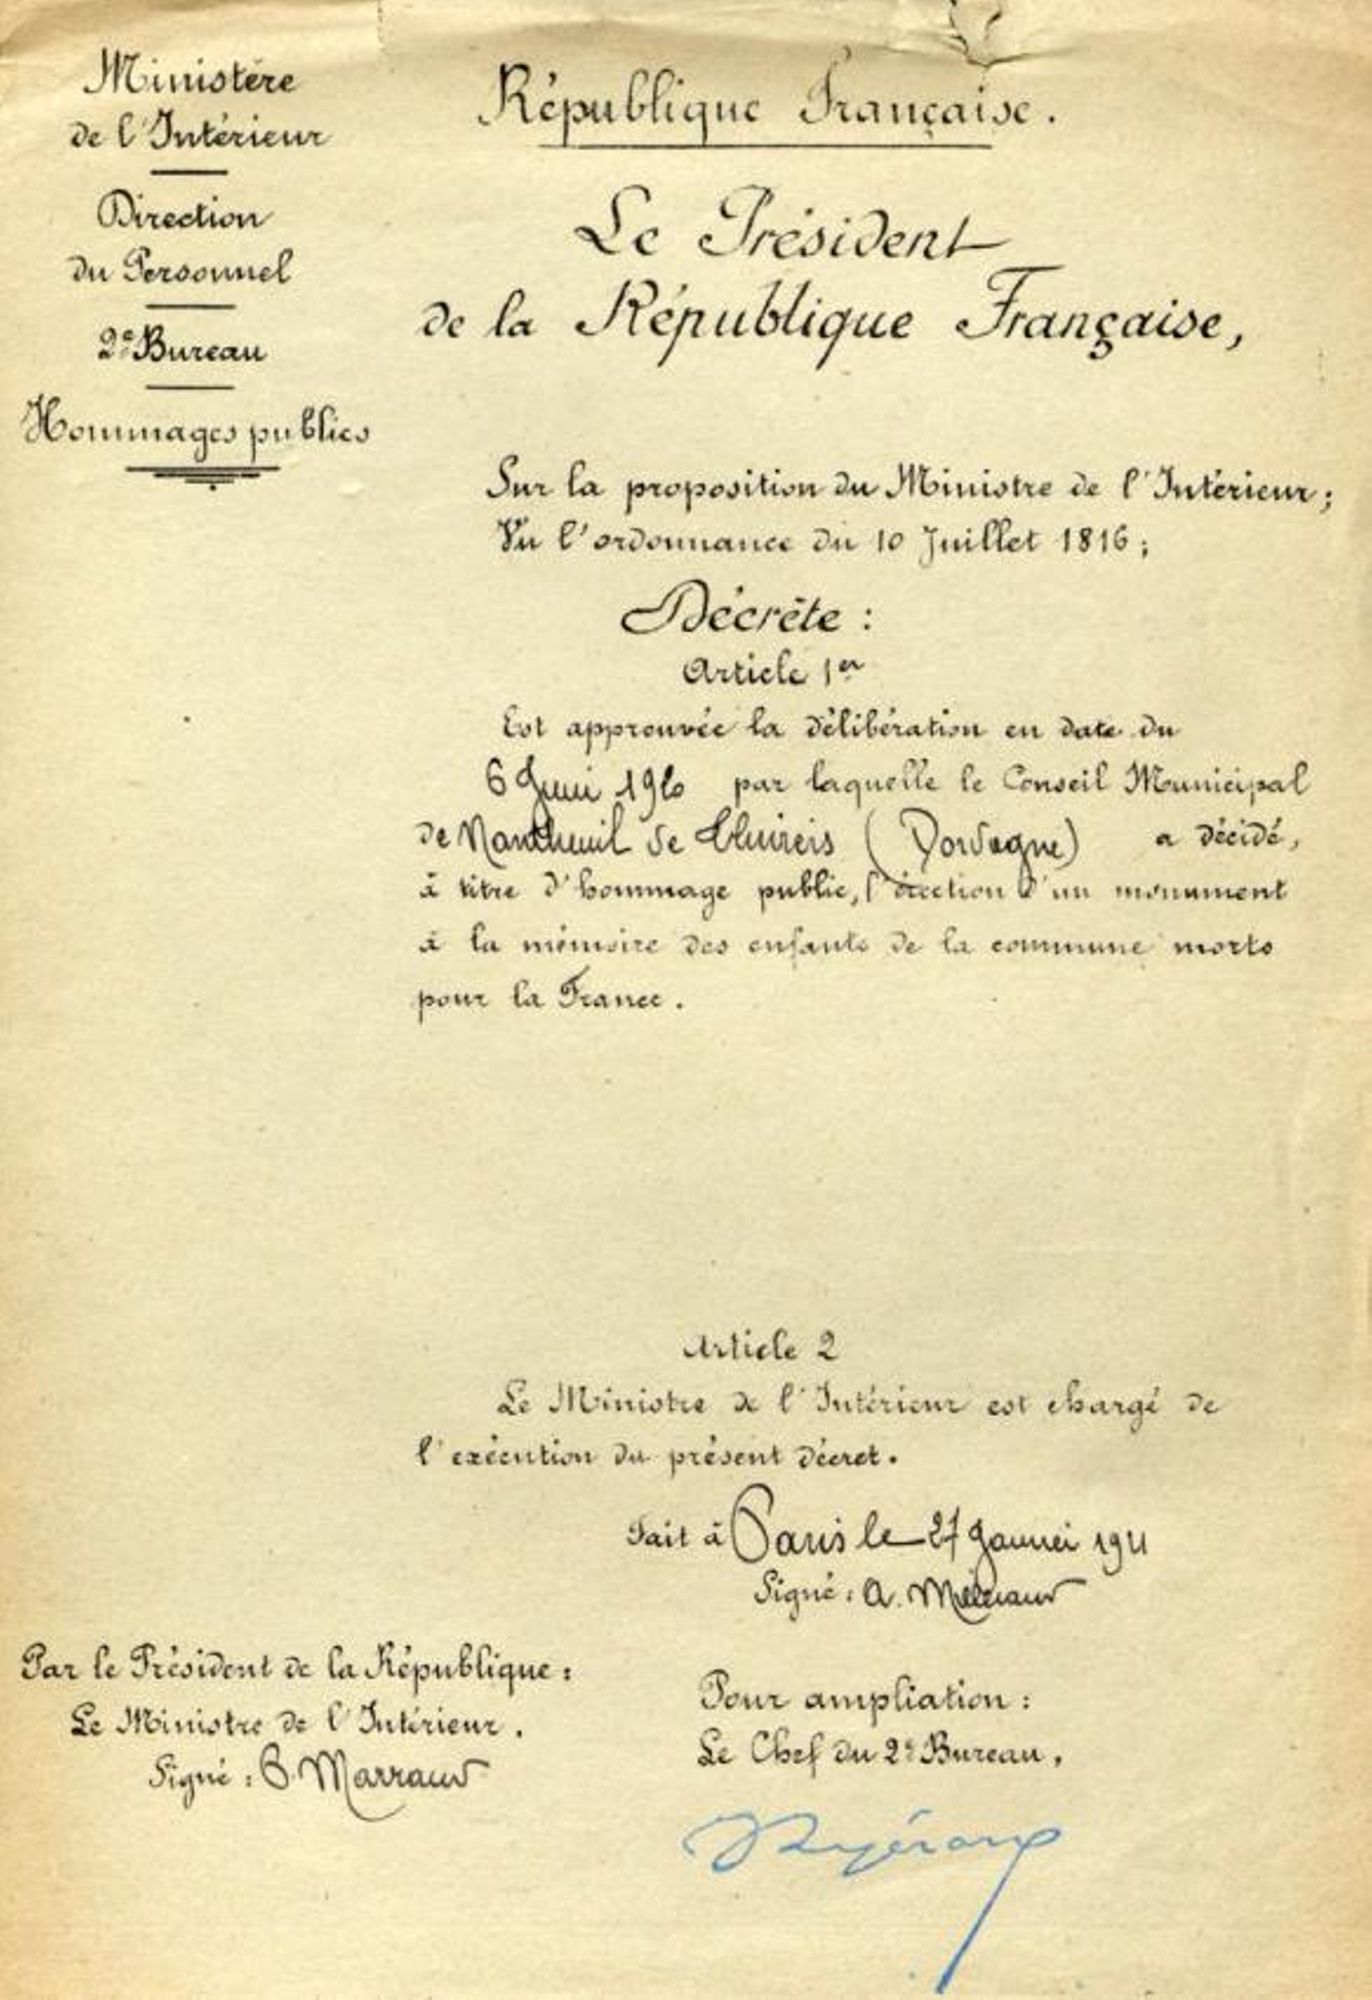 Ministère
de l'Intérieur
Direction
du Personnel
2e Bureau
Hommages publics
République Française.
Le Président
de la République Française,
Sur la proposition du Ministre de l'Intérieur;
Vu l'ordonnance du 10 Juillet 1816;
Décrète :
Article 1er
Est approuvée la délibération en date du
6 Juin 1920 par laquelle le Conseil Municipal
de Nantheuil de Thiviers (Dordogne) a décidé,
à titre d'hommage public, l'érection d'un monument
à la mémoire des enfants de la commune morts
pour la France.
Article 2
Le Ministre de l'Intérieur est chargé de
l'exécution du présent décret.
Fait à Paris le 27 Janvier 1921
Signé : A. Millerand
Par le Président de la République :
Le Ministre de l'Intérieur.
Signé : P. Marraud
Pour ampliation :
Le Chef du 2e Bureau,